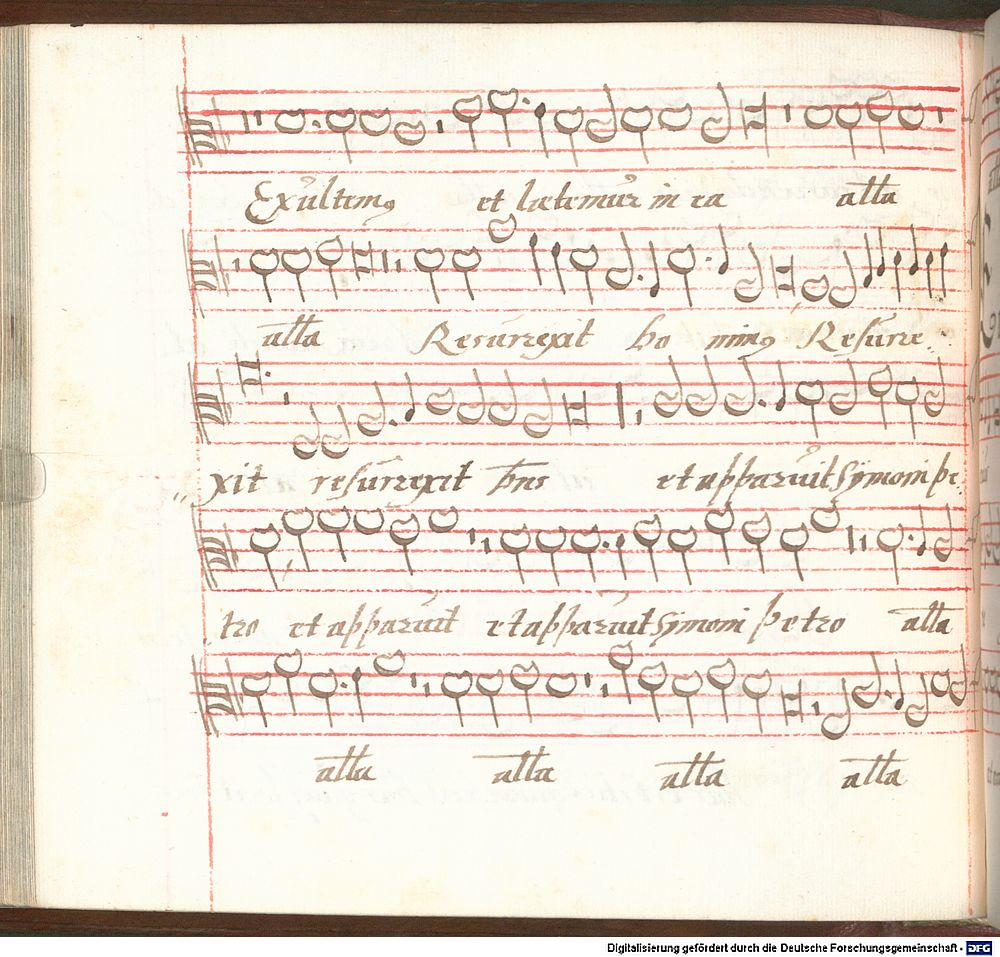 Exultemꝯ et lætemur in ea alla
alla Resurrexit Do minꝯ Resurre
xit resurrexit dns et apparuit symoni pe
tro et apparuit et apparuit symoni petro alla
alla alla alla alla
Digitalisierung gefördert durch die Deutsche Forschungsgemeinschaft - DFG